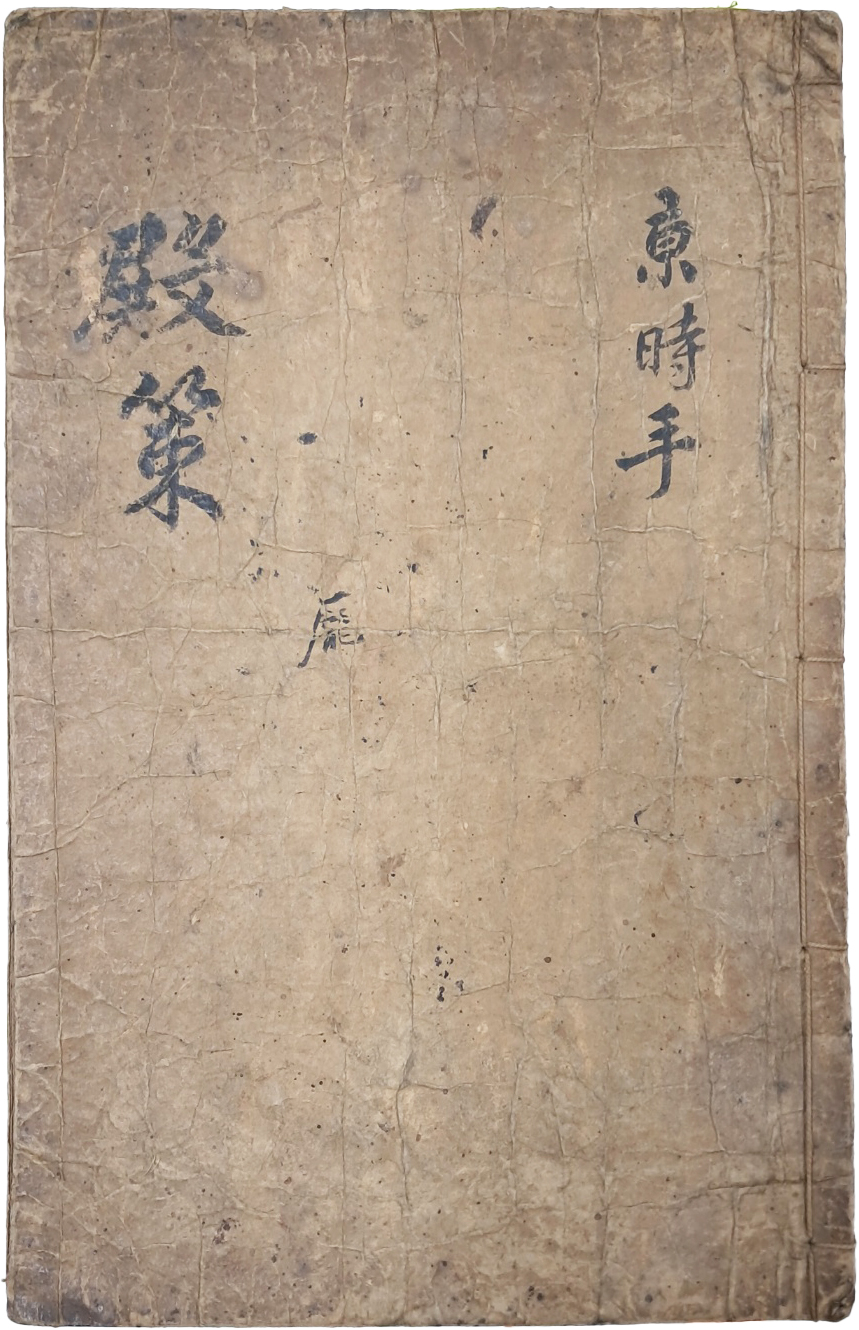 東時手
殿策